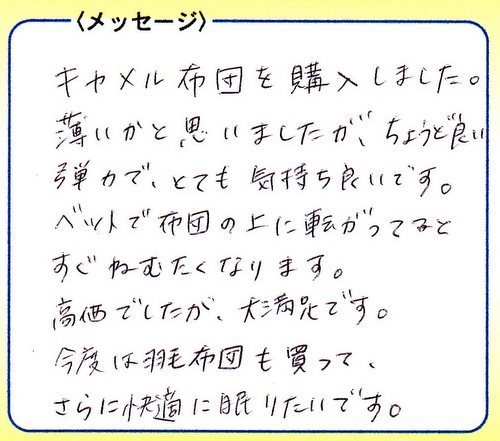 〈メッセージ〉
キャメル布団を購入しました。
薄いかと思いましたが、ちょうど良い
弾力で、とても気持ち良いです。
ベットで布団の上に転がってると
すぐねむたくなります。
高価でしたが、大満足です。
今度は羽毛布団も買って、
さらに快適に眠りたいです。